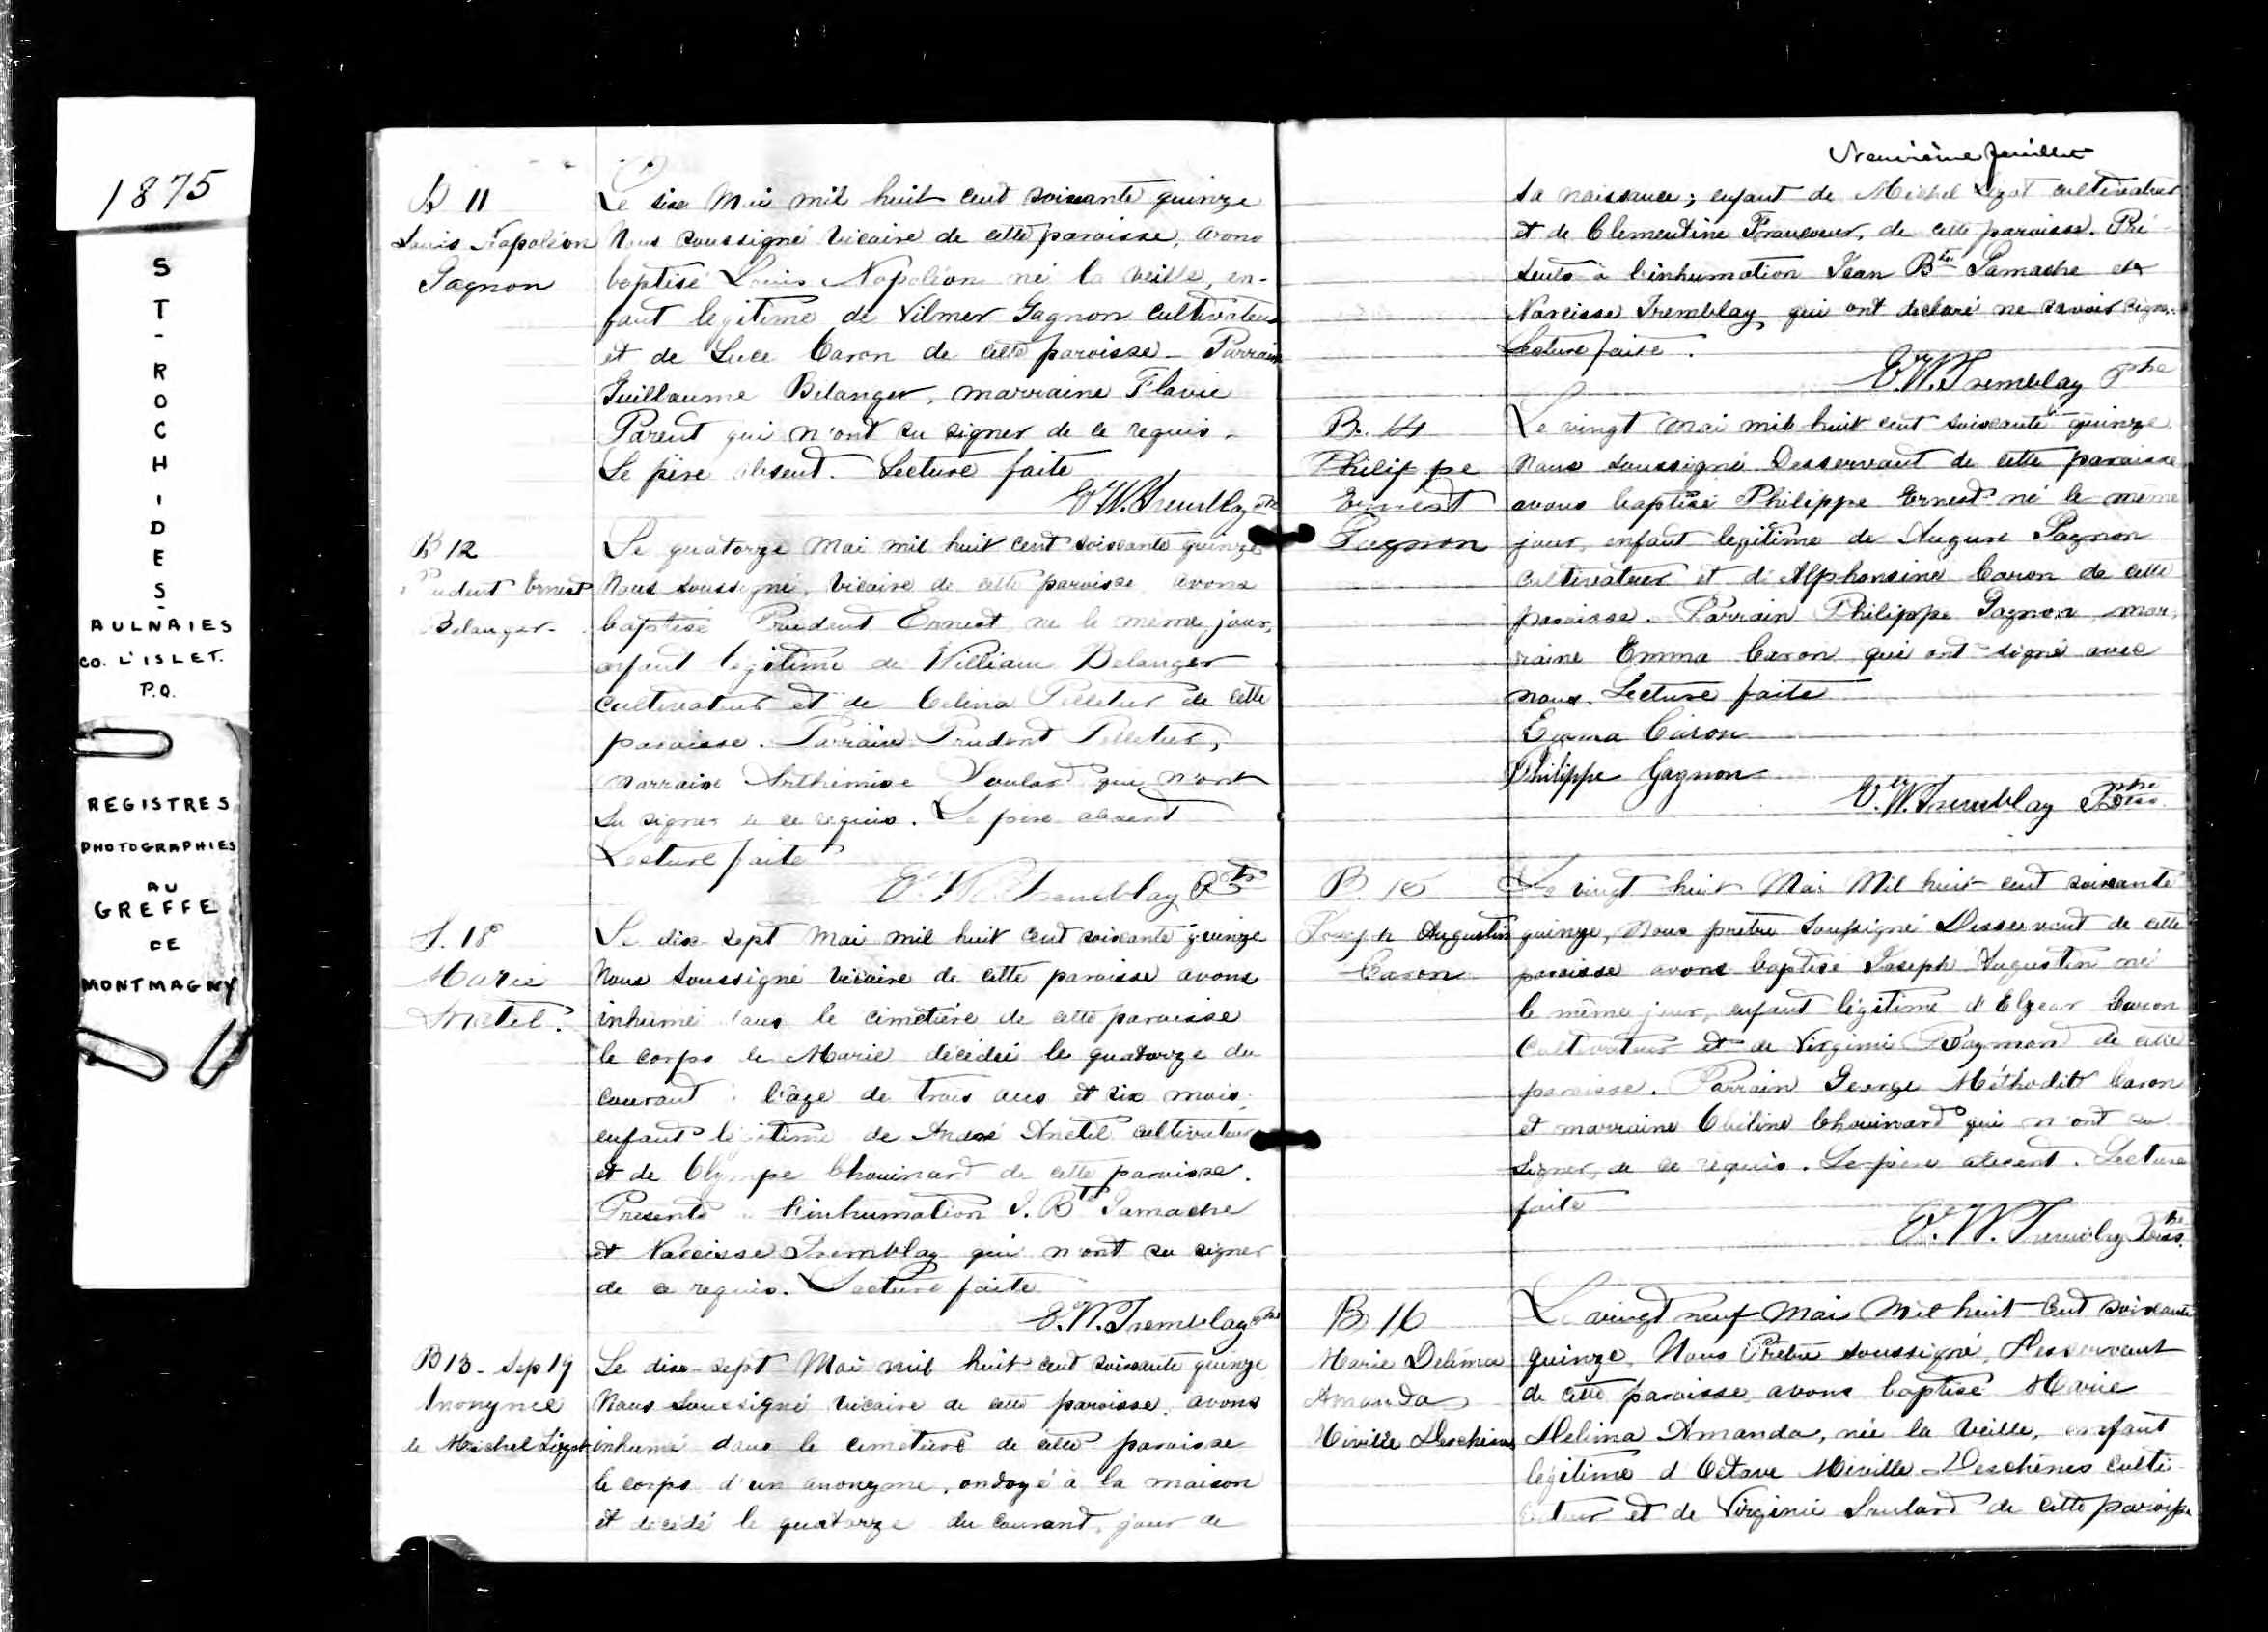 1875
ST-ROCH-DES-
AULNAIES
CO. L'ISLET.
P.Q.
REGISTRES
PHOTOGRAPHIES
AU
GREFFE
DE
MONTMAGNY
B 11
Louis Napoléon
Gagnon
Le six Mai mil huit cent soixante quinze
Nous soussigné Vicaire de cette paroisse, avons
baptisé Louis Napoléon né la veille, en-
fant legitime de Vilmer Gagnon cultivateur
et de Luce Caron de cette paroisse - Parrain
Guillaume Belanger, marraine Flavie
Parent qui n'ont su signer de ce requis.
Le père absent. Lecture faite
E. W. Tremblay Ptre
B 12
Prudent Ernest
Belanger.
Le quatorze Mai mil huit cent soixante quinze
Nous soussigné, Vicaire de cette paroisse avons
baptisé Prudent Ernest né le meme jour,
enfant legitime de William Belanger
cultivateur et de Celina Pelletier de cette
paroisse. Parrain Prudent Pelletier,
marraine Arthimise Soulard qui n'ont
su signer de ce requis. Le père absent
Lecture faite
E. W. Tremblay Ptre
S. 18
Marie
Anctil.
Le dix-sept Mai mil huit cent soixante quinze
Nous soussigné Vicaire de cette paroisse avons
inhumé dans le cimetière de cette paroisse
le corps de Marie décédée le quatorze du
courant à l'âge de trois ans et six mois,
enfant légitime de André Anctil cultivateur
et de Olympe Chouinard de cette paroisse.
Présents à l'inhumation J. Bte Gamache
et Narcisse Tremblay qui n'ont su signer
de ce requis. Lecture faite
E. W. Tremblay Ptre
B 13 - Sep 19
Anonyme
de Michel Lizot
Le dix-sept Mai mil huit cent soixante quinze
Nous soussigné Vicaire de cette paroisse, avons
inhumé dans le cimetière de cette paroisse
le corps d'un anonyme, ondoyé à la maison
et décédé le quatorze du courant, jour de
Neuvième feuillet
sa naissance; enfant de Michel Lizot cultivateur
et de Clementine Francoeur, de cette paroisse. Pré-
sents à l'inhumation Jean Bte Gamache et
Narcisse Tremblay qui ont declaré ne savoir signer.
Lecture faite.
E. W. Tremblay Ptre
B. 14
Philippe
Ernest
Gagnon
Le vingt Mai mil huit cent soixante quinze
Nous soussigné Desservant de cette paroisse
avons baptisé Philippe Ernest né le même
jour, enfant legitime de Gagnon
cultivateur et d'Alphonsine Caron de cette
paroisse. Parrain Philippe Gagnon mar-
raine Emma Caron qui ont signé avec
nous. Lecture faite
Emma Caron
Philippe Gagnon
E. W. Tremblay Ptre Dess.
B. 15
Joseph Augustin
Caron
Le vingt huit Mai Mil huit cent soixante
quinze, Nous prêtre soussigné Desservant de cette
paroisse avons baptisé Joseph Augustin né
le même jour, enfant légitime d'Elzear Caron
Cultivateur et de Virginie Raymond de cette
paroisse. Parrain George Méthode Caron
et marraine Chouinard qui n'ont su
signer, de ce requis. Le père absent. Lecture
faite
E. W. Tremblay Ptre Dess.
B 16
Marie Delima
Amanda
Miville Deschènes
Le vingt neuf Mai Mil huit Cent soixante
quinze, Nous Prêtre soussigné, Desservant
de cette paroisse avons baptisé Marie
Delima Amanda, née la Veille, enfant
légitime d'Octave Miville Deschènes culti-
vateur et de Virginie Soulard de cette paroisse